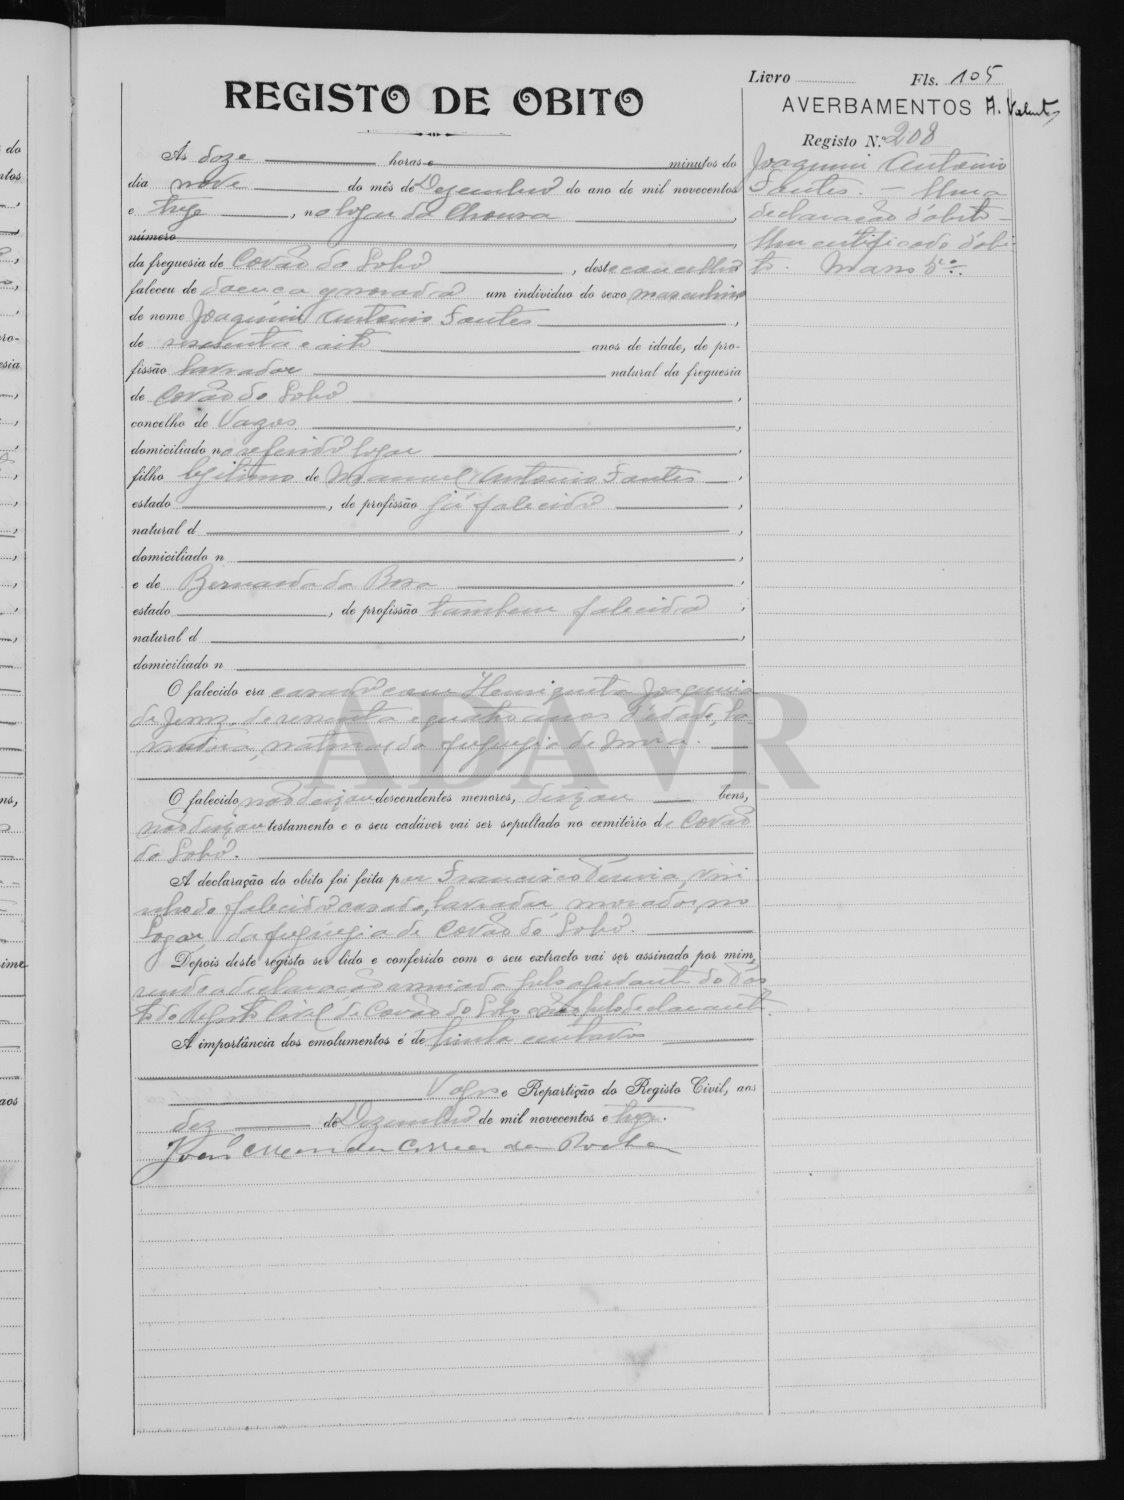 Livro Fls. 105
REGISTO DE OBITO
AVERBAMENTOS A. Valent
Registo N.º 208
Joaquim Antonio
Santos. — Uma
declaração d'obito —
Um certificado d'obi-
to. Maço 5º.
Ás doze horas e minutos do
dia nove do mês de Dezembro do ano de mil novecentos
e treze, no logar da Choura,
número
da freguesia de Covão do Lobo, deste concelho
faleceu de doença ignorada um individuo do sexo masculino
de nome Joaquim Antonio Santos,
de sessenta e oito anos de idade, de pro-
fissão lavrador natural da freguesia
de Covão do Lobo,
concelho de Vagos,
domiciliado no referido logar,
filho legitimo de Manuel Antonio Santos,
estado, de profissão já falecido,
natural d,
domiciliado n,
e de Bernarda da Rosa,
estado, de profissão tambem falecida,
natural d,
domiciliado n
O falecido era casado com Henriqueta Joaquina
de Jesus, de sessenta e quatro anos d'edade, la
vradora, natural da freguezia de Mira.
O falecido não deixou descendentes menores, deixou bens,
não deixou testamento e o seu cadáver vai ser sepultado no cemitério de Covão
do Lobo.
A declaração do obito foi feita por Francisco, visi
nho do falecido casado, lavrador morador, no
Logar, da freguezia de Covão do Lobo.
Depois deste registo ser lido e conferido com o seu extracto vai ser assinado por mim,
sendo a declaração enviada pelo ajudante do Pos
to do Registo Civil de Covão do Lobo pelo declarante.
A importância dos emolumentos é de trinta centavos
Vagos e Repartição do Registo Civil, aos
dez de Dezembro de mil novecentos e treze.
José Mendes Correa da Rocha
ADAVR